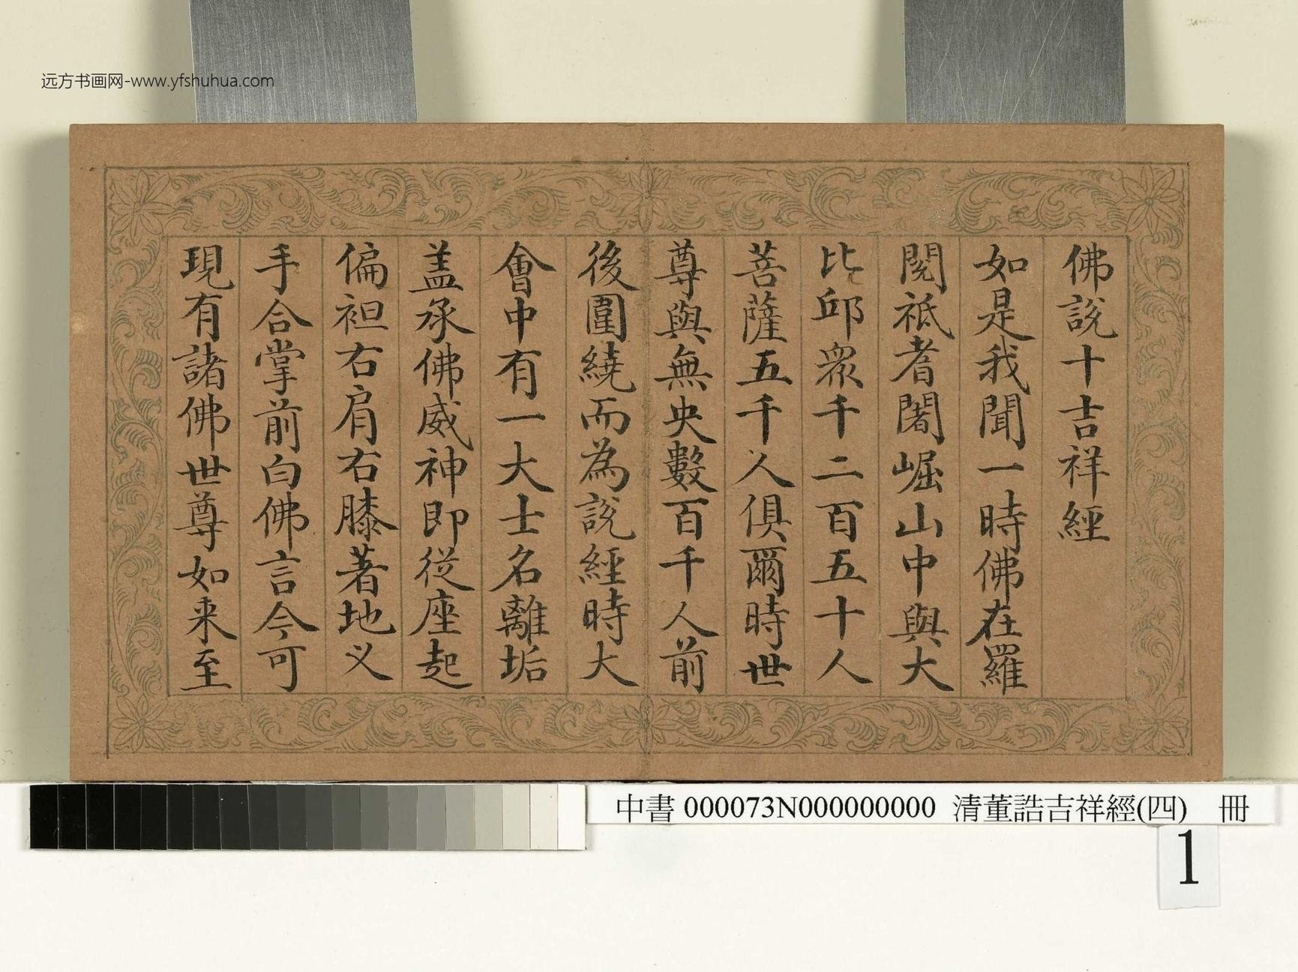 远方书画网-www.yfshuhua.com
佛說十吉祥經
如是我聞一時佛在羅
閱祇耆闍崛山中與大
比邱眾千二百五十人
菩薩五千人俱爾時世
尊與無央數百千人前
後圍繞而為說經時大
會中有一大士名離垢
盖承佛威神即從座起
偏袒右肩右膝著地义
手合掌前白佛言今可
現有諸佛世尊如来至
中書000073N000000000 清董誥吉祥經(四) 冊
1